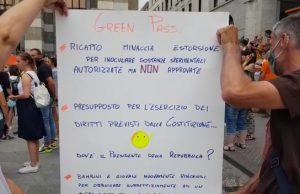 GREEN PASS
RICATTO MINACCIA ESTORSIONE
PER INOCULARE SOSTANZE SPERIMENTALI
AUTORIZZATE MA NON APPROVATE
PRESUPPOSTO PER L'ESERCIZIO DEI
DIRITTI PREVISTI DALLA COSTITUZIONE...
DOV'È IL PRESIDENTE DELLA REPUBBLICA?
BAMBINI E GIOVANI NUOVAMENTE
PER